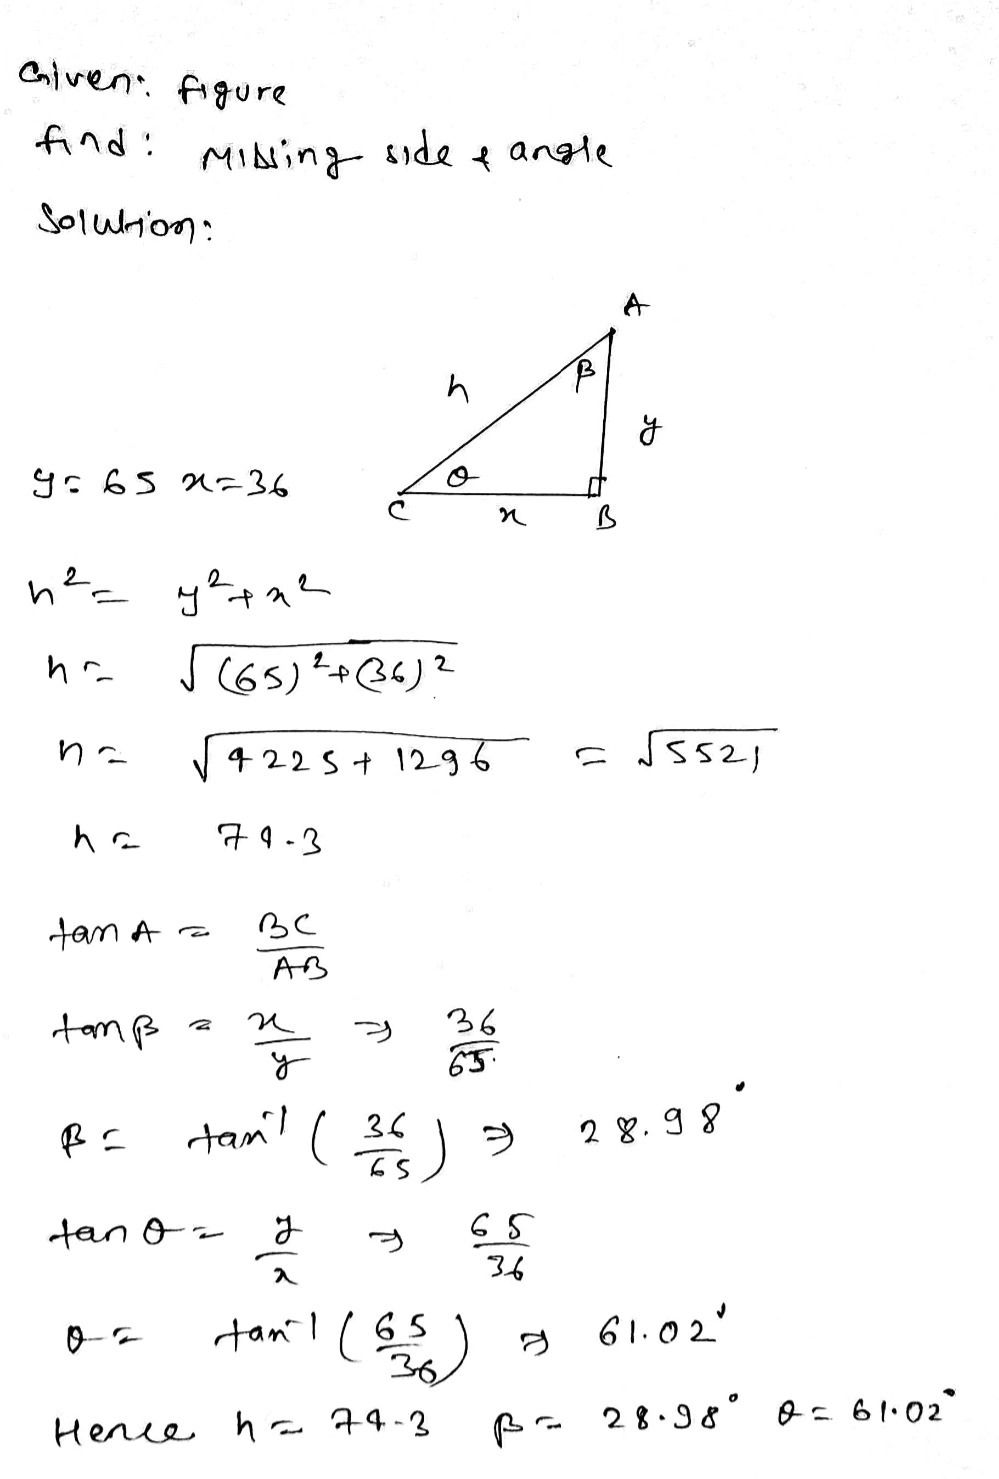 Given: figure
find: Missing side & angle
Solution:
A
h
β
y
y= 65 x=36
θ
C
x
B
h² = y²+x²
h = √(65)²+(36)²
h = √4225+1296 = √5521
h = 74.3
tan A = BC/AB
tan β = x/y ⇒ 36/65.
β = tan⁻¹ (36/65) ⇒ 28.98°
tan θ = y/x ⇒ 65/36
θ = tan⁻¹ (65/36) ⇒ 61.02°
Hence h = 74.3 β = 28.98° θ = 61.02°